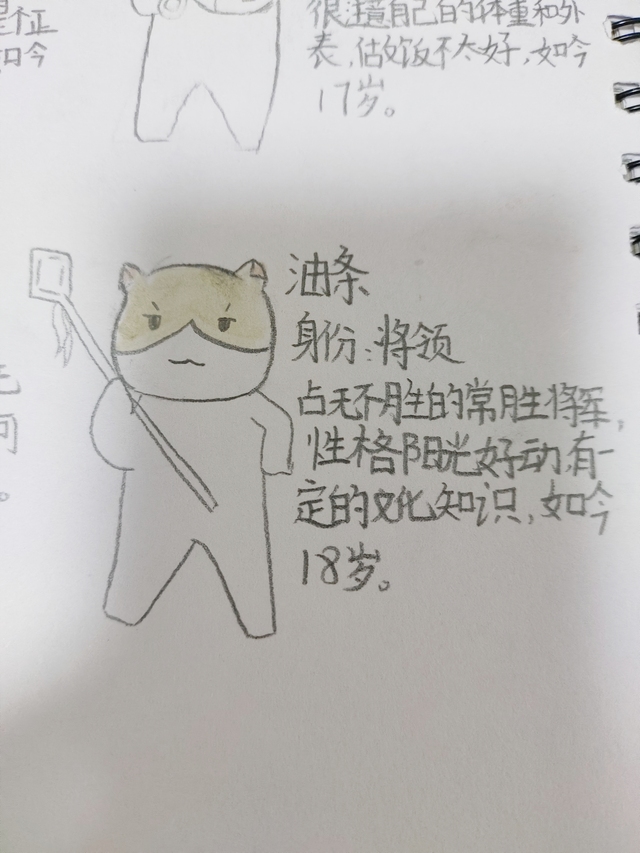 个正
今
很注意自己的体重和外
表,做饭不太好,如今
17岁。
油条
身份:将领
占无不胜的常胜将军,
性格阳光好动,有一
定的文化知识,如今
18岁。